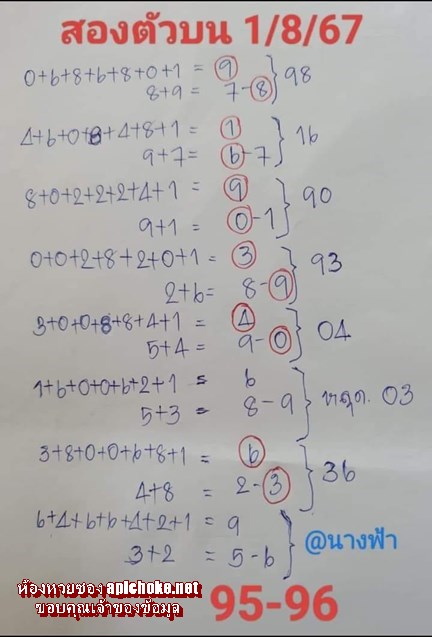 สองตัวบน 1/8/67
0+6+8+6+8+0+1 = 9 } 98
8+9 = 7-8
4+6+0+8+4+8+1 = 1 } 16
9+7= 6-7
8+0+2+2+2+4+1 = 9 } 90
9+1 = 0-1
0+0+2+8+2+0+1 = 3 } 93
2+6= 8-9
3+0+0+8+8+4+1 = 4 } 04
5+4 = 9-0
1+6+0+0+6+2+1 = 6 } หลุด. 03
5+3 = 8-9
3+8+0+0+6+8+1 = 6 } 36
4+8 = 2-3
6+4+6+6+4+2+1 = 9 } @นางฟ้า
3+2 = 5-6
ห้องหวยซอง apichoke.net
ขอบคุณเจ้าของข้อมูล
95-96